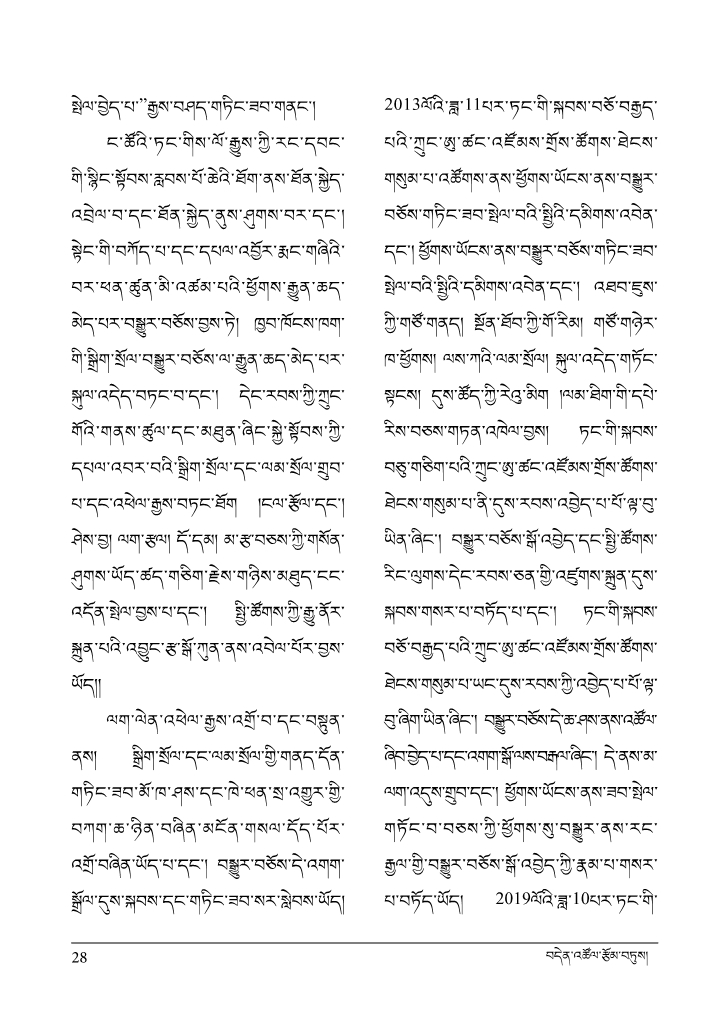 སྤེལ་བྱེད་པ་”རྒྱས་བཤད་གཏིང་ཟབ་གནང་།
ང་ཚོའི་ཏང་གིས་ལོ་རྒྱུས་ཀྱི་རང་དབང་
གི་སྙིང་སྟོབས་རླབས་པོ་ཆེའི་ཐོག་ནས་ཐོན་སྐྱེད་
འབྲེལ་བ་དང་ཐོན་སྐྱེད་ནུས་ཤུགས་བར་དང་།
སྟེང་གི་བཀོད་པ་དང་དཔལ་འབྱོར་རྨང་གཞིའི་
བར་ཕན་ཚུན་མི་འཚམ་པའི་ཕྱོགས་རྒྱུན་ཆད་
མེད་པར་བསྒྱུར་བཅོས་བྱས་ཏེ། ཁྱབ་ཁོངས་ཁག་
གི་སྒྲིག་སྲོལ་བསྒྱུར་བཅོས་ལ་རྒྱུན་ཆད་མེད་པར་
སྐུལ་འདེད་བཏང་བ་དང་། དེང་རབས་ཀྱི་ཀྲུང་
གོའི་གནས་ཚུལ་དང་མཐུན་ཞིང་སྐྱེ་སྟོབས་ཀྱི་
དཔལ་འབར་བའི་སྒྲིག་སྲོལ་དང་ལམ་སྲོལ་གྲུབ་
པ་དང་འཕེལ་རྒྱས་བཏང་ཐོག །ངལ་རྩོལ་དང་།
ཤེས་བྱ། ལག་རྩལ། དོ་དམ། མ་རྩ་བཅས་ཀྱི་གསོན་
ཤུགས་ཡོད་ཚད་གཅིག་རྗེས་གཉིས་མཐུད་ངང་
འདོན་སྤེལ་བྱས་པ་དང་། སྤྱི་ཚོགས་ཀྱི་རྒྱུ་ནོར་
སྐྲུན་པའི་འབྱུང་རྩ་སྒོ་ཀུན་ནས་འབེལ་པོར་བྱས་
ཡོད།།
ལག་ལེན་འཕེལ་རྒྱས་འགྲོ་བ་དང་བསྟུན་
ནས། སྒྲིག་སྲོལ་དང་ལམ་སྲོལ་གྱི་གནད་དོན་
གཏིང་ཟབ་མོ་ཁ་ཤས་དང་ཁེ་ཕན་སྲ་འགྱུར་གྱི་
བཀག་ཆ་ཉིན་བཞིན་མངོན་གསལ་དོད་པོར་
འགྲོ་བཞིན་ཡོད་པ་དང་། བསྒྱུར་བཅོས་དེ་འགག་
སྒྲོལ་དུས་སྐབས་དང་གཏིང་ཟབ་སར་སླེབས་ཡོད།
2013ལོའི་ཟླ་11པར་ཏང་གི་སྐབས་བཅོ་བརྒྱད་
པའི་ཀྲུང་ཨུ་ཚང་འཛོམས་གྲོས་ཚོགས་ཐེངས་
གསུམ་པ་འཚོགས་ནས་ཕྱོགས་ཡོངས་ནས་བསྒྱུར་
བཅོས་གཏིང་ཟབ་སྤེལ་བའི་སྤྱིའི་དམིགས་འབེན་
དང་། ཕྱོགས་ཡོངས་ནས་བསྒྱུར་བཅོས་གཏིང་ཟབ་
སྤེལ་བའི་སྤྱིའི་དམིགས་འབེན་དང་། འཐབ་ཇུས་
ཀྱི་གཙོ་གནད། སྔོན་ཐོབ་ཀྱི་གོ་རིམ། གཙོ་གཉེར་
ཁ་ཕྱོགས། ལས་ཀའི་ལམ་སྲོལ། སྐུལ་འདེད་གཏོང་
སྟངས། དུས་ཚོད་ཀྱི་རེའུ་མིག །ལམ་ཐིག་གི་དཔེ་
རིས་བཅས་གཏན་འཁེལ་བྱས། ཏང་གི་སྐབས་
བཅུ་གཅིག་པའི་ཀྲུང་ཨུ་ཚང་འཛོམས་གྲོས་ཚོགས་
ཐེངས་གསུམ་པ་ནི་དུས་རབས་འབྱེད་པ་པོ་ལྟ་བུ་
ཡིན་ཞིང་། བསྒྱུར་བཅོས་སྒོ་འབྱེད་དང་སྤྱི་ཚོགས་
རིང་ལུགས་དེང་རབས་ཅན་གྱི་འཛུགས་སྐྲུན་དུས་
སྐབས་གསར་པ་བཏོད་པ་དང་། ཏང་གི་སྐབས་
བཅོ་བརྒྱད་པའི་ཀྲུང་ཨུ་ཚང་འཛོམས་གྲོས་ཚོགས་
ཐེངས་གསུམ་པ་ཡང་དུས་རབས་ཀྱི་འབྱེད་པ་པོ་ལྟ་
བུ་ཞིག་ཡིན་ཞིང་། བསྒྱུར་བཅོས་དེ་ཆ་ཤས་ནས་འཚོལ་
ཞིབ་བྱེད་པ་དང་འགག་སྒོ་ལས་བརྒལ་ཞིང་། དེ་ནས་མ་
ལག་འདུས་གྲུབ་དང་། ཕྱོགས་ཡོངས་ནས་ཟབ་སྤེལ་
གཏོང་བ་བཅས་ཀྱི་ཕྱོགས་སུ་བསྒྱུར་ནས་རང་
རྒྱལ་གྱི་བསྒྱུར་བཅོས་སྒོ་འབྱེད་ཀྱི་རྣམ་པ་གསར་
པ་བཏོད་ཡོད། 2019ལོའི་ཟླ་10པར་ཏང་གི་
28
བདེན་འཚོལ་རྩོམ་བཏུས།